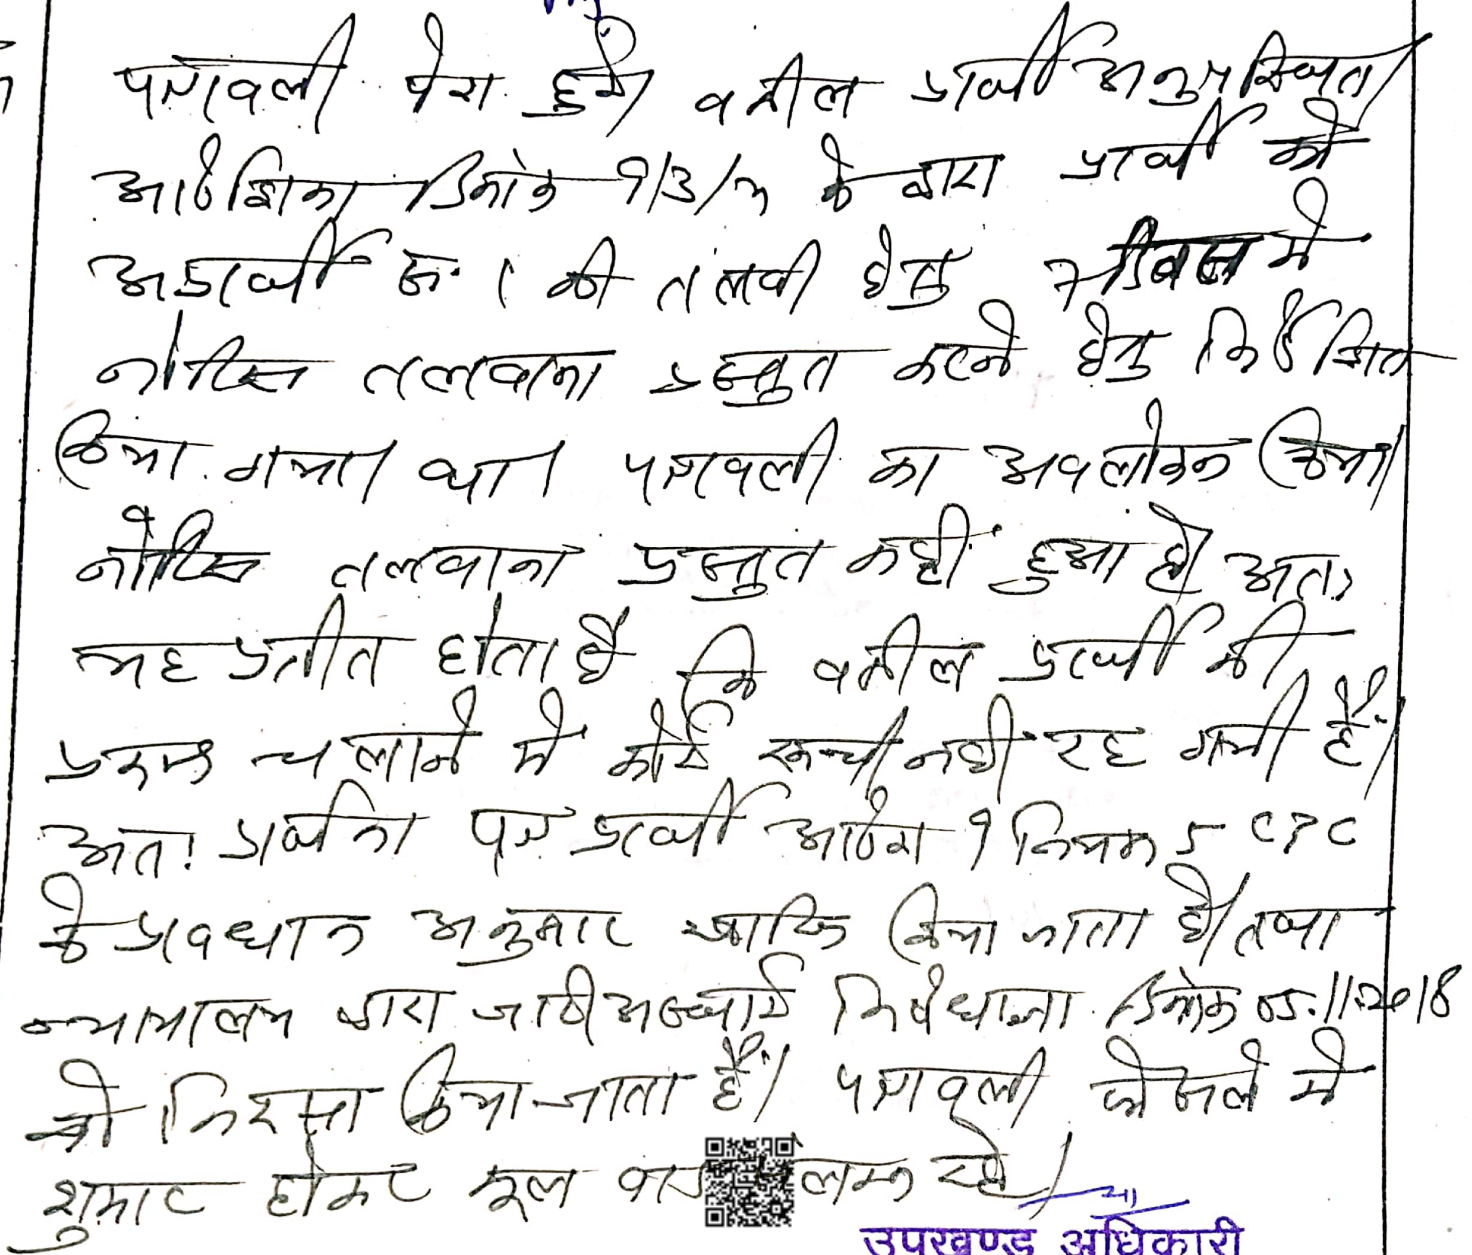 पत्रावली पेश हुई। वकील प्रार्थी अनुपस्थित।
आदेशिका दिनांक 9/3/ के द्वारा प्रार्थी को
अप्रार्थी सं. 1 की तलबी हेतु 7 दिवस में
नोटिस तलवाना प्रस्तुत करने हेतु निर्देशित
किया गया था। पत्रावली का अवलोकन किया।
नोटिस तलवाना प्रस्तुत नहीं हुआ है। अतः
यह प्रतीत होता है कि वकील प्रार्थी की
प्रकरण चलाने में कोई रूची नहीं रह गयी है।
अतः प्रार्थना पत्र प्रार्थी आदेश 9 नियम 5 CPC
के प्रावधान अनुसार खारिज किया जाता है। तथा
न्यायालय द्वारा जारी अस्थाई निषेधाज्ञा दिनांक 05.11.2018
को निरस्त किया जाता है। पत्रावली फैसले में
शुमार होकर मूल रहे।
उपखण्ड अधिकारी